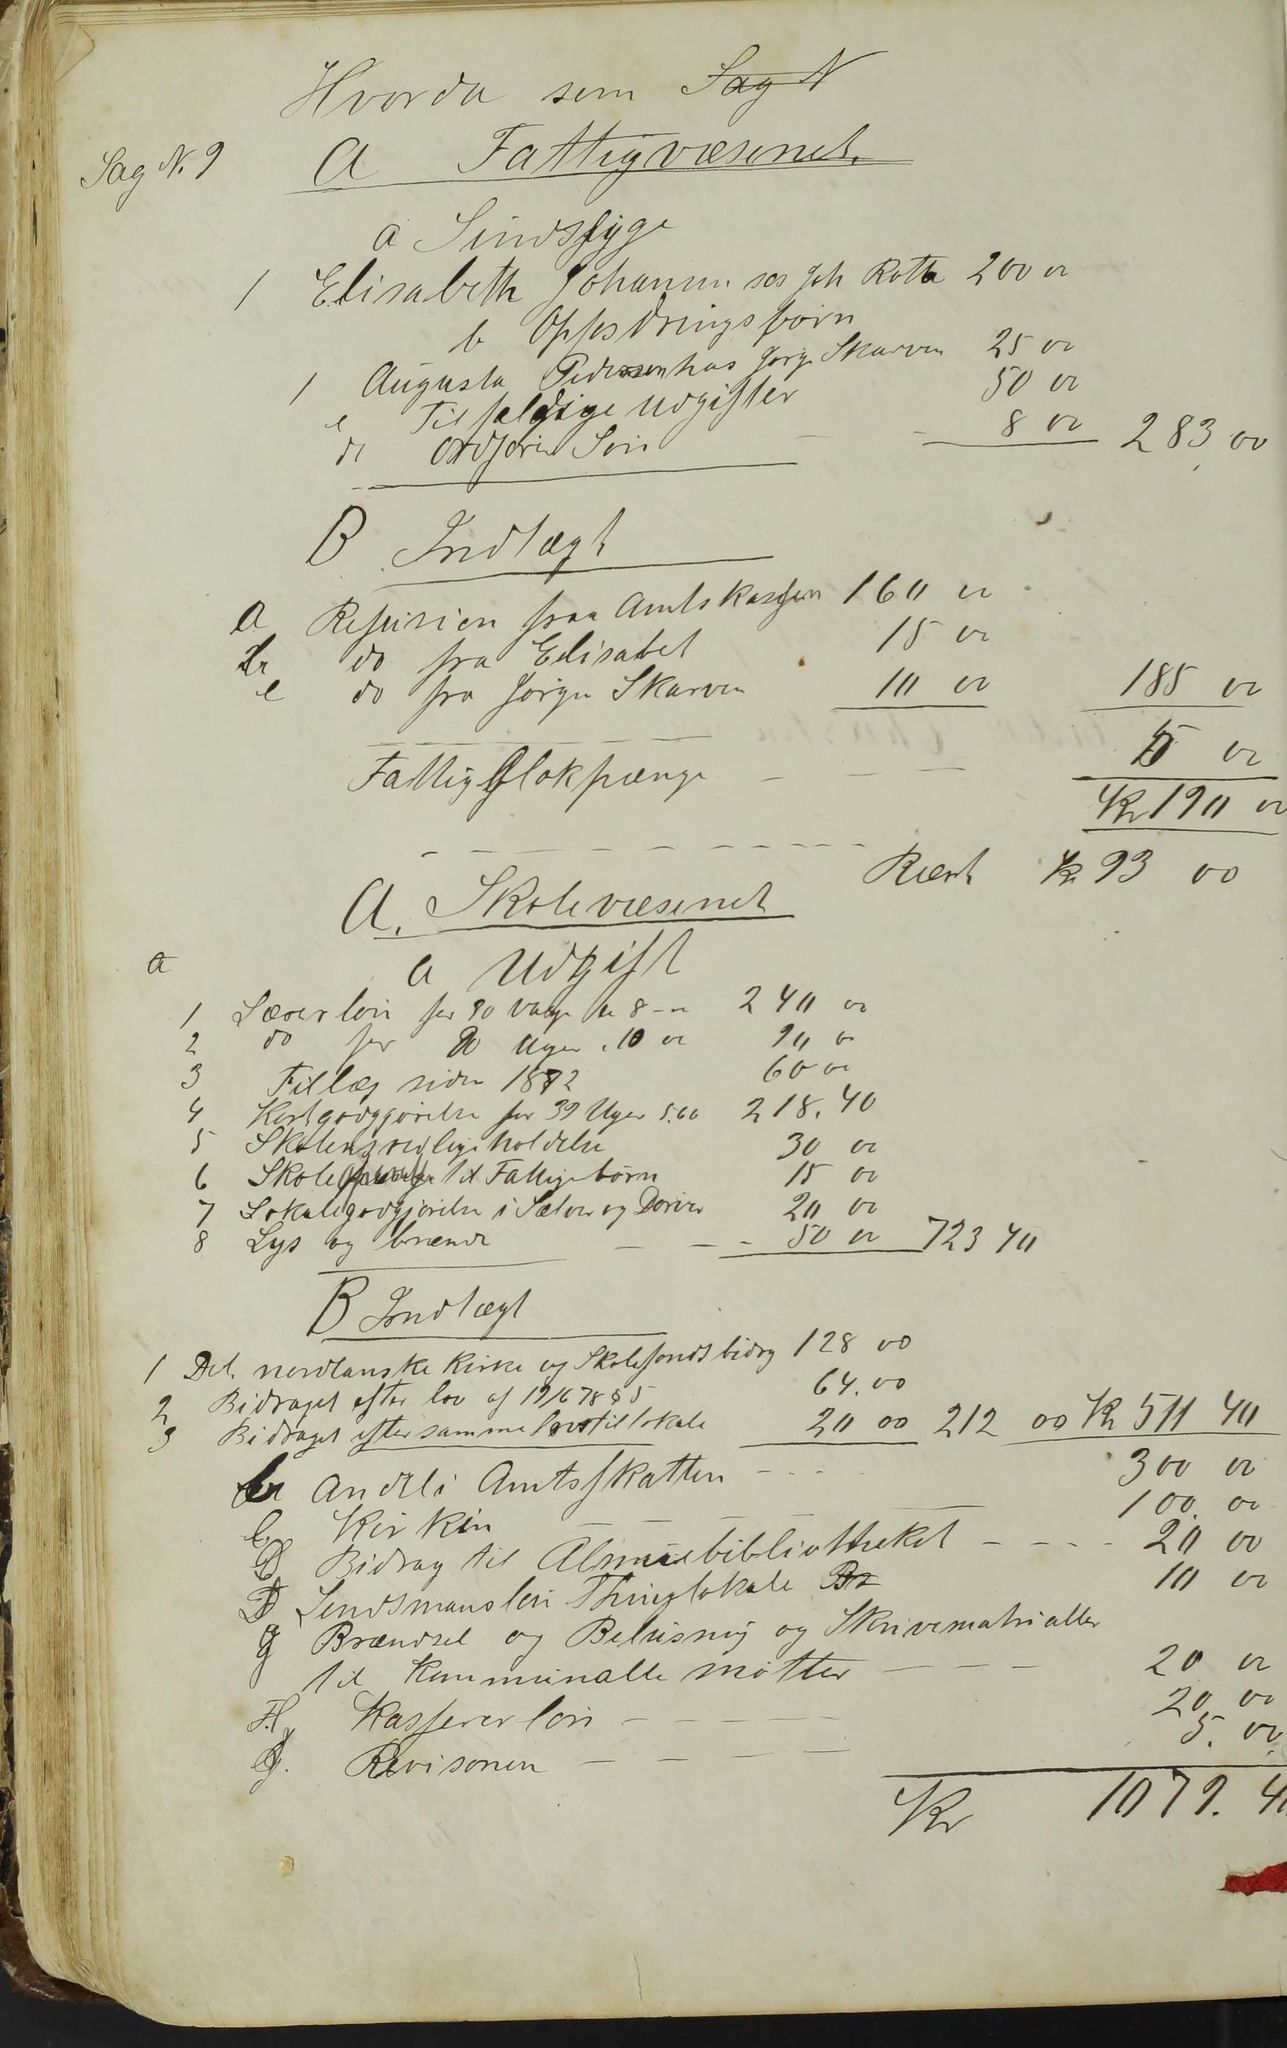 Hvorda som Sag N
Sag N. 9 A Fattigvæsenet.
a Sindssyge
1 Elisabeth Johansen hos Joh Rotta 200 00
b Oppfostringsbørn
1 Augusta Pedersen hos Jørgn Skarven 25 00
c Tilfældige Udgifter 50 00
d Ordførerløn 8 00 283 00
B Indtægt
a Refusion fraa Amtskassen 160 00
b do fra Elisabet 15 00
c do fra Jørgn Skarven 10 00 185 00
Fattigblokpænge 5 00
Kr 190 00
Ræst Kr 93 00
A. Skolevæsenet
a a Udgift
1 Lærerløn for 30 Uger a 8 - 00 240 00
2 do for 9 Uger a 10 00 90 00
3 Tillæg siden 1882 60 00
4 Kostgodtgjørelse for 39 Uger 5.60 218.40
5 Skolens vedligeholdelse 30 00
6 Skole til Fattige børn 15 00
7 Lokalegodtgjørelse i Sælver og Dorver 20 00
8 Lys og brænde 50 00 723 40
B Indtægt
1 Det nordlanske Kirke og Skolefonds bidrag 128 00
2 Bidraget efter lov af 19/6 78 § 5 64.00
3 Bidraget efter samme lov til lokale 20 00 212 00 Kr 511 40
b Andel i Amtsskatten 300 00
c Kirken 100. 00
D Bidrag til Almuebibliotheket 20 00
Lensmansløn Thinglokale 10 00
g Brændsel og Belüsning og Skrivematrialler
til kommunalle møtter 20 00
H Kassererløn 20 00
J. Revisonen 5. 00
Kr 1079. 40